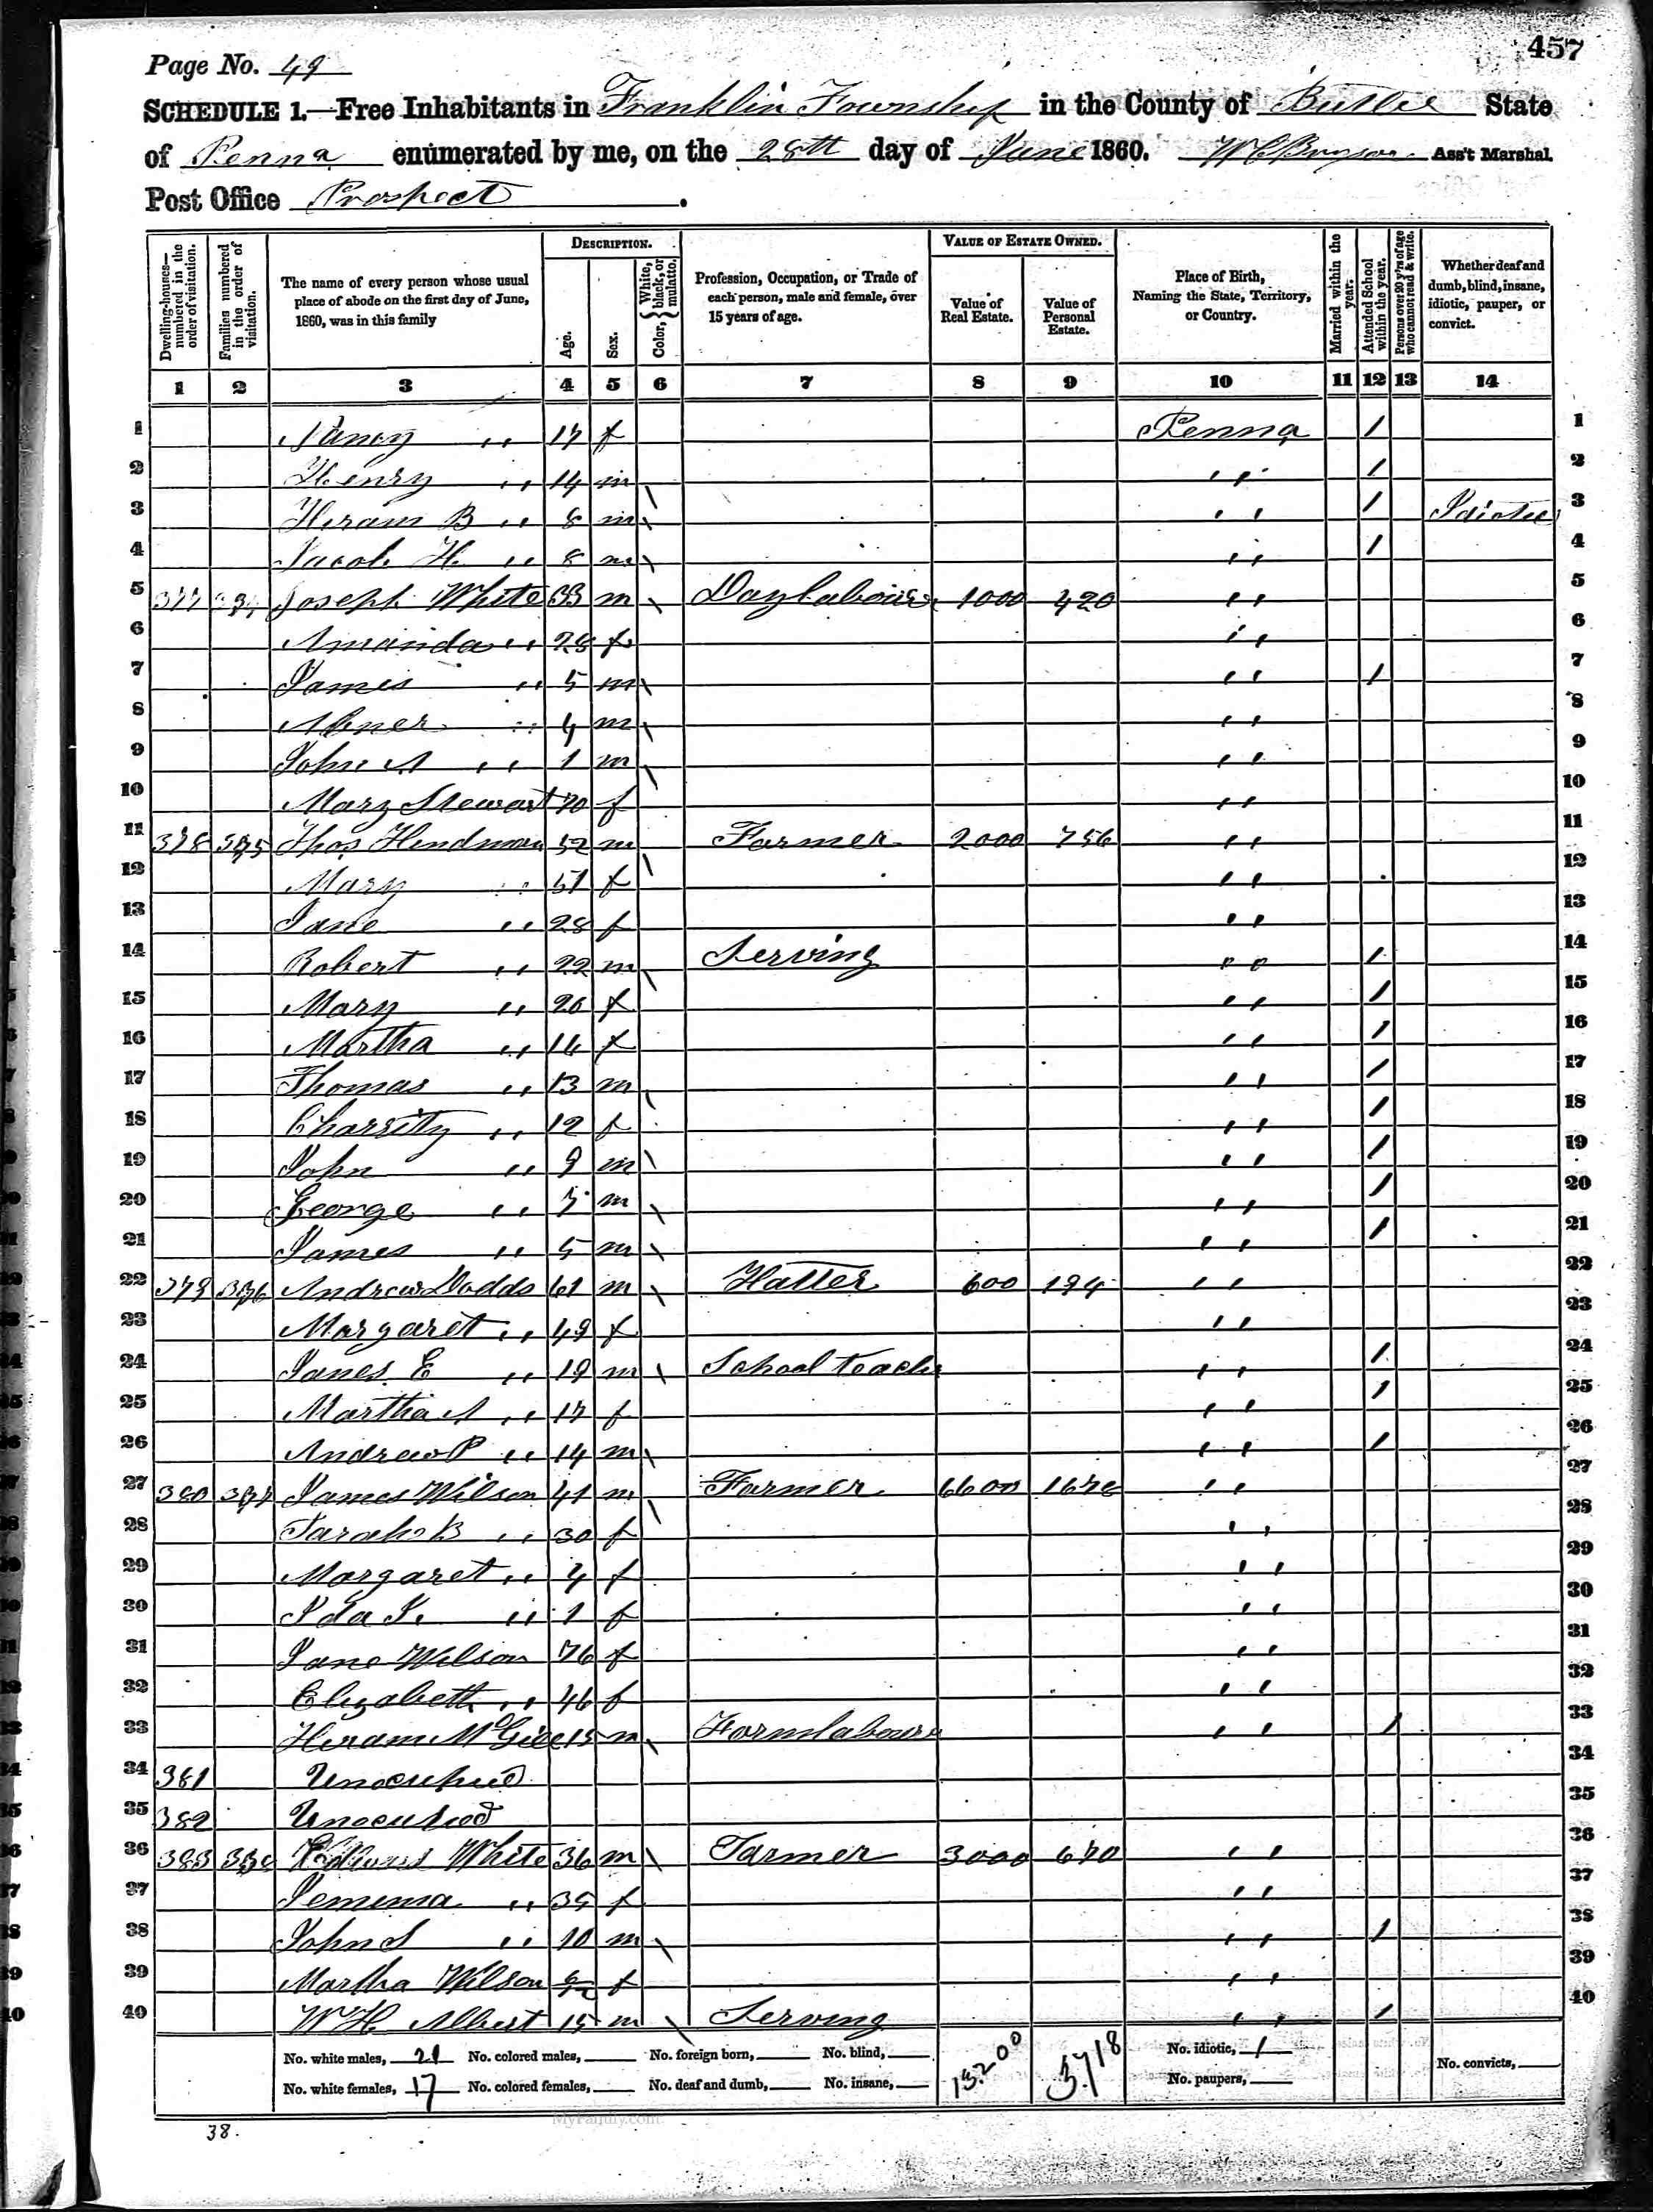 457
Page No. 49
SCHEDULE 1.—Free Inhabitants in Franklin Township in the County of Butler State
of Penna enumerated by me, on the 28th day of June 1860. W C Bryson Ass't Marshal.
Post Office Prospect.
Dwelling-houses—numbered in the order of visitation. Families numbered in the order of visitation. The name of every person whose usual place of abode on the first day of June, 1860, was in this family DESCRIPTION. Age. Sex. Color, { White, black, or mulatto. Profession, Occupation, or Trade of each person, male and female, over 15 years of age. VALUE OF ESTATE OWNED. Value of Real Estate. Value of Personal Estate. Place of Birth, Naming the State, Territory, or Country. Married within the year. Attended School within the year. Persons over 20 y'rs of age who cannot read & write. Whether deaf and dumb, blind, insane, idiotic, pauper, or convict.
1 2 3 4 5 6 7 8 9 10 11 12 13 14
1 Nancy " 17 f Penna / 1
2 Henry " 14 m " / 2
3 Hiram B " 8 m \ " / Idiotic 3
4 Jacob H. " 8 m \ " / 4
5 377 Joseph White 33 m \ Day labourer 1000 420 " 5
6 Amanda " 28 f " 6
7 James " 5 m \ " / 7
8 Abner " 4 m \ " 8
9 John A " 1 m \ " 9
10 Mary Stewart 70 f " 10
11 378 335 Thos Hindman 52 m \ Farmer 2000 756 " 11
12 Mary " 51 f " 12
13 Jane " 28 f " 13
14 Robert " 22 m \ Serving " / 14
15 Mary " 20 f " / 15
16 Martha " 16 f " / 16
17 Thomas " 13 m \ " / 17
18 Charrity " 12 f " / 18
19 John " 9 m \ " / 19
20 George " 7 m \ " / 20
21 James " 5 m \ " / 21
22 379 336 Andrew Dodds 61 m \ Hatter 600 194 " 22
23 Margaret " 49 f " 23
24 James E " 19 m \ School teacher " / 24
25 Martha A " 17 f " / 25
26 Andrew P " 14 m \ " / 26
27 380 337 James Wilson 41 m \ Farmer 6600 " 27
28 Sarah B " 30 f " 28
29 Margaret " 4 f " 29
30 Ida J. " 1 f " 30
31 Jane Wilson 76 f " 31
32 Elizabeth " 46 f " 32
33 Hiram McGill 15 m \ Farm labourer " / 33
34 381 Unocupied 34
35 382 Unocupied 35
36 383 338 White 36 m \ Farmer 3000 670 " 36
37 Jemima " 35 f " 37
38 John S " 10 m \ " / 38
39 Martha Wilson f " 39
40 W H Albert 15 m \ Serving " / 40
No. white males, 21 No. colored males, No. foreign born, No. blind, 13.200 3.718 No. idiotic, 1 No. convicts,
No. white females, 17 No. colored females, No. deaf and dumb, No. insane, No. paupers,
MyFamily.com
38.